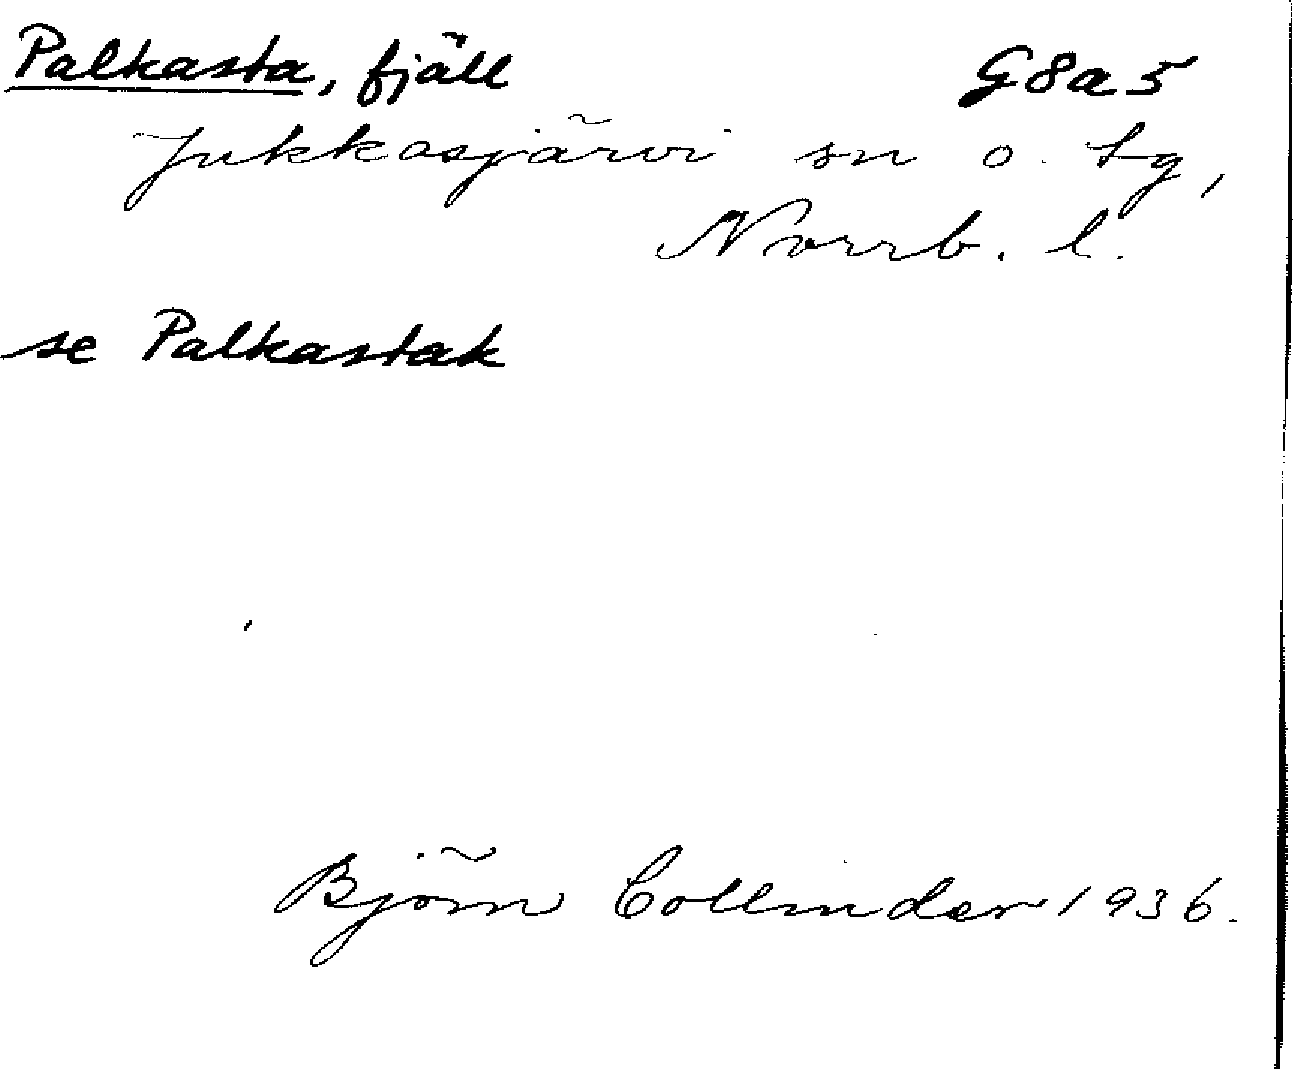 Palkasta, fjäll G8a5
Jukkasjärvi sn o. tg,
Norrb. l.
se Palkastak
Björn Collinder 1936.